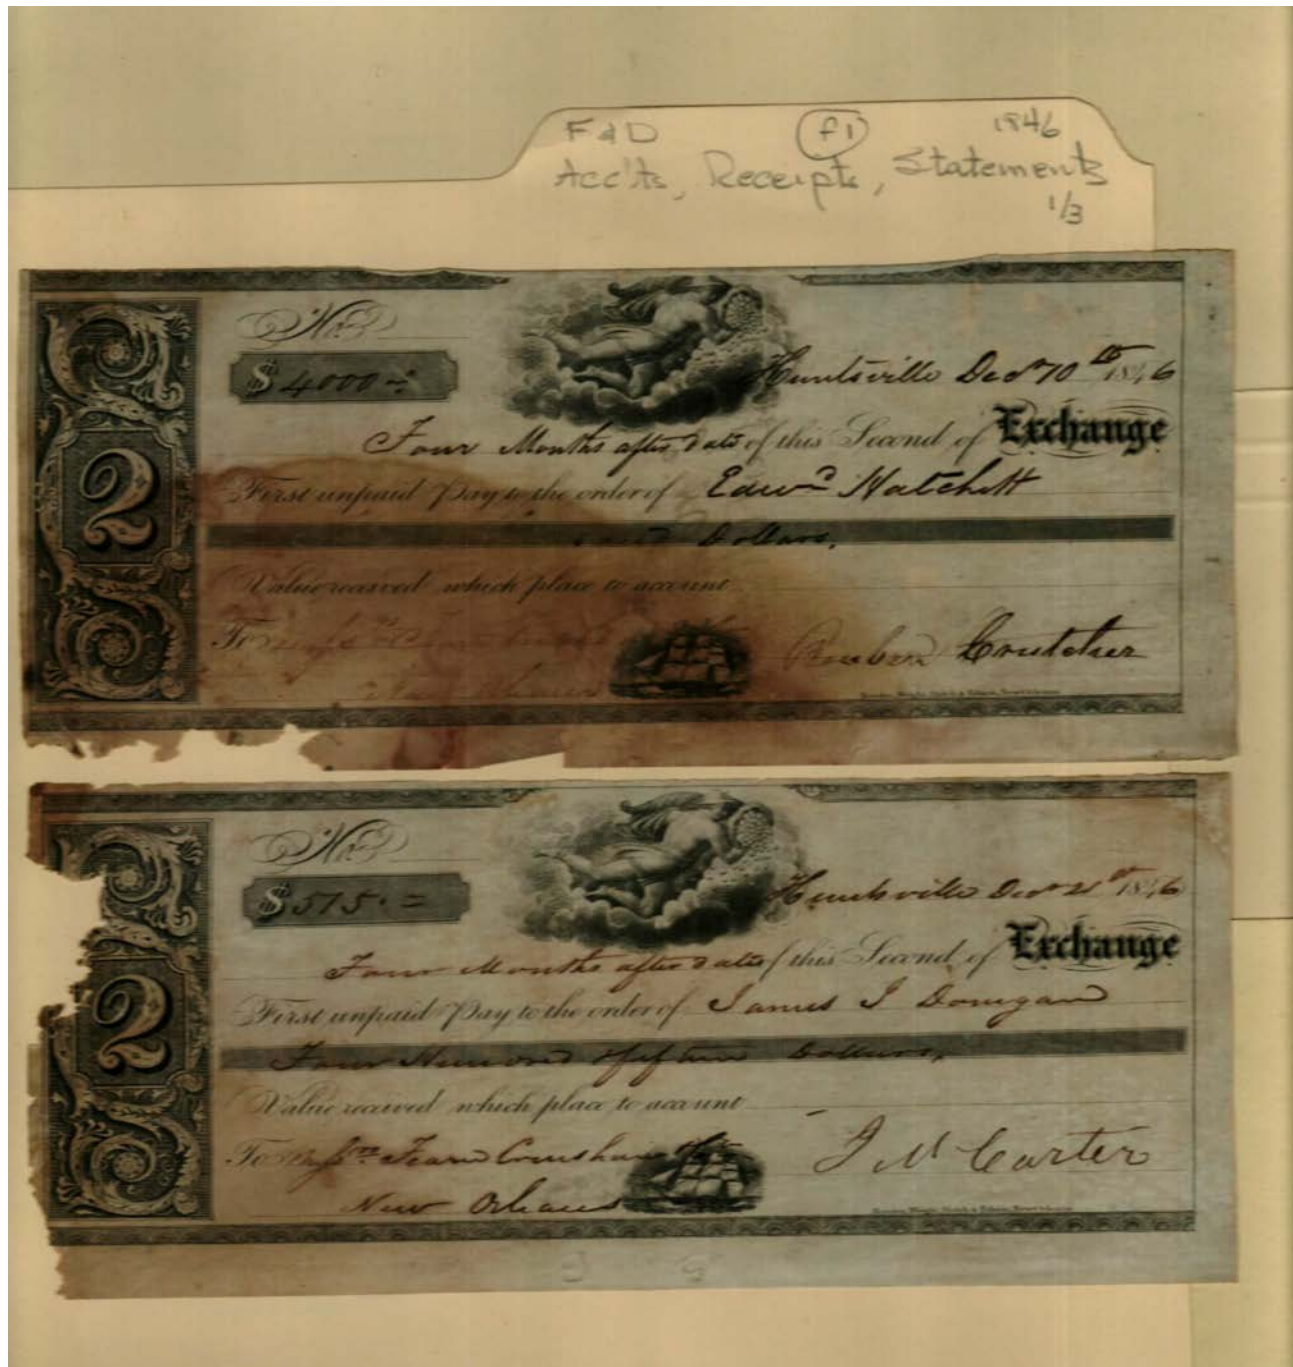 F & D f1 1846
Acc'ts, Receipts, Statements
1/3
No
$4000-
Huntsville Decr 10th 1846
Four Months after date of this Second of Exchange
First unpaid Pay to the order of Edwd Hatchett
Dollars,
Value received which place to account
To
Reuben Crutcher
2
No
$515.=
Huntsville Decr 21st 1846
Four Months after date of this Second of Exchange
First unpaid Pay to the order of James J Donegan
Four Hundred & fifteen Dollars,
Value received which place to account
To Messrs Fearn Crenshaw & Co
New Orleans
J M Carter
2